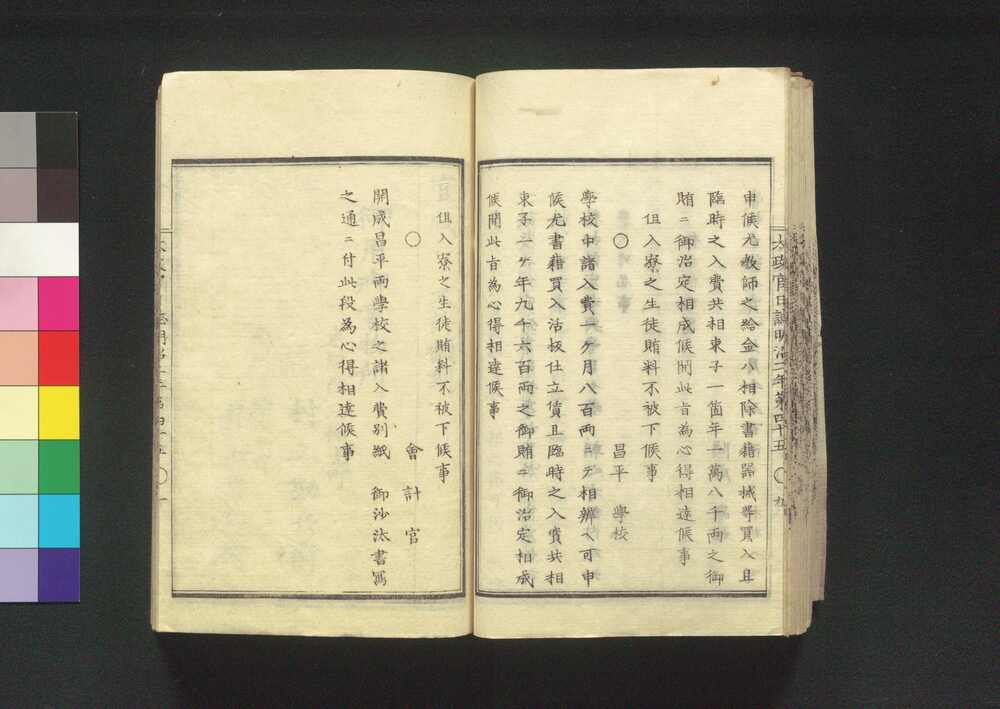 申候尤教師之給金ハ相除書籍器械等買入且
臨時之入費共相束子一箇年一萬八千両之御
賄ニ御治定相成候間此旨為心得相達候事
但入寮之生徒賄料不被下候事
〇　昌平　學校
學校中諸入費一ケ月八百両ニテ相辨ヘ可申
候尤書籍買入活板仕立債且臨時之入費共相
束子一ケ年九千六百両之御賄ニ御治定相成
候間此旨為心得相達候事
但入寮之生徒賄料不被下候事
〇　會計官
開成昌平両學校之諸入費別紙　御沙汰書寫
之通ニ付此段為心得相達候事
太政官日誌明治二年第四十五　〇　九